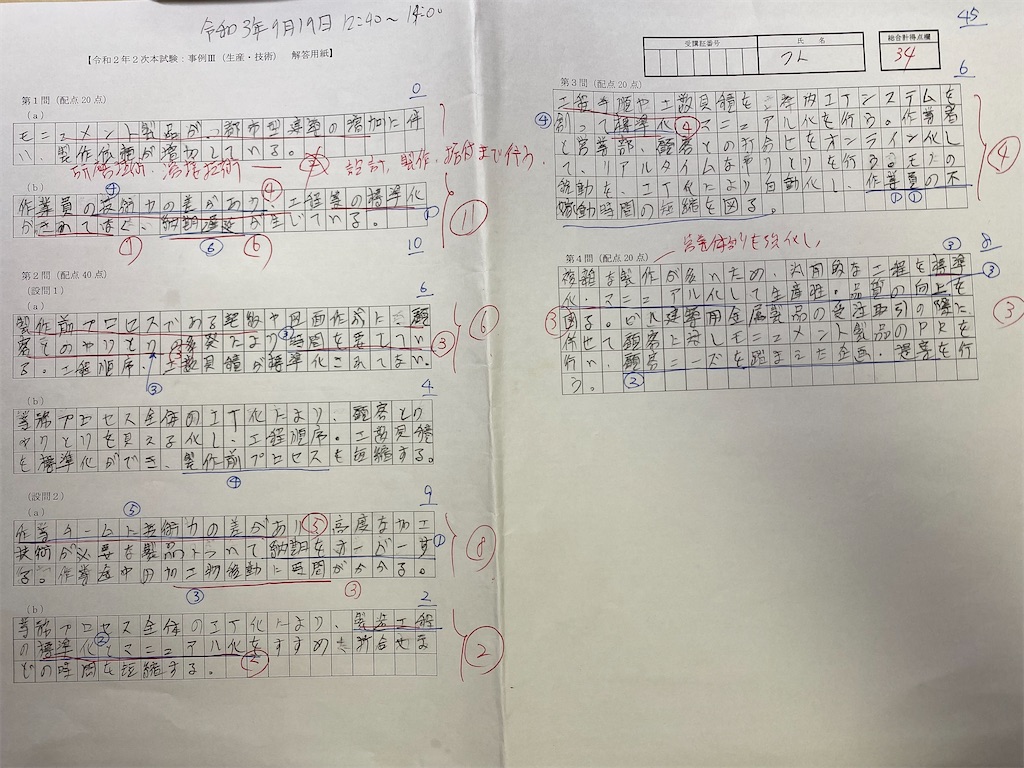 令和3年9月19日 12:40～14:00
【令和２年２次本試験：事例Ⅲ（生産・技術） 解答用紙】
第１問（配点20点）
0
（a）
モニュメント製品が、都市型建築の増加に伴
い、製作依頼が増加している。
研磨技術、溶接技術 設計、製作、据付まで行う。
（b）
作業員の技術力の差があり、工程等の標準化
がされてなく、納期遅延が生じている。
④ ④ ① ⑪
⑥ ⑥
10
第２問（配点40点）
（設問１）
6
（a）
製作前プロセスである 図面作成に、顧
客とのやりとり 変更により時間を要してい
る。工程順序、工数見積が標準化されてない。
③ ③ ③ ⑥
4
（b）
業務プロセス全体のIT化により、顧客とり
やりとりを見える化し、工程順序。工数見積
を標準化ができ、製作前プロセスを短縮する。
④
（設問２）
9
（a）
⑤
作業チームに技術力の差があり、高度な加工
技術が必要な製品について納期をオーバーす
る。作業途中の加工物移動に時間がかかる。
⑤ ① ⑧
③ ③
2
（b）
業務プロセス全体のIT化により、製造工程
の標準化とマニュアル化をすすめ、打合せま
での時間を短縮する。
② ② ②
45
受講証番号
氏 名
総合計得点欄
フレ
34
第３問（配点20点）
6
工程手順や工数見積を、 社内ITシステムを
創って標準化、マニュアル化を行う。作業者
と営業部、顧客との打合せをオンライン化し
て、リアルタイムなやりとりを行う。モノの
移動を、IT化により自動化し、作業員の不
稼動時間の短縮を図る。
④ ④ ① ① ④
営業体制を強化し、
第４問（配点20点）
8
複雑な製作が多いため、汎用的な工程を標準
化・マニュアル化して生産性・品質の向上を
図る。ビル建築用金属製品の受注取引の際に、
併せて顧客に対しモニュメント製品のPRを
行い、顧客ニーズを踏まえた企画・提案を行
う。
③ ③ ③ ② ③